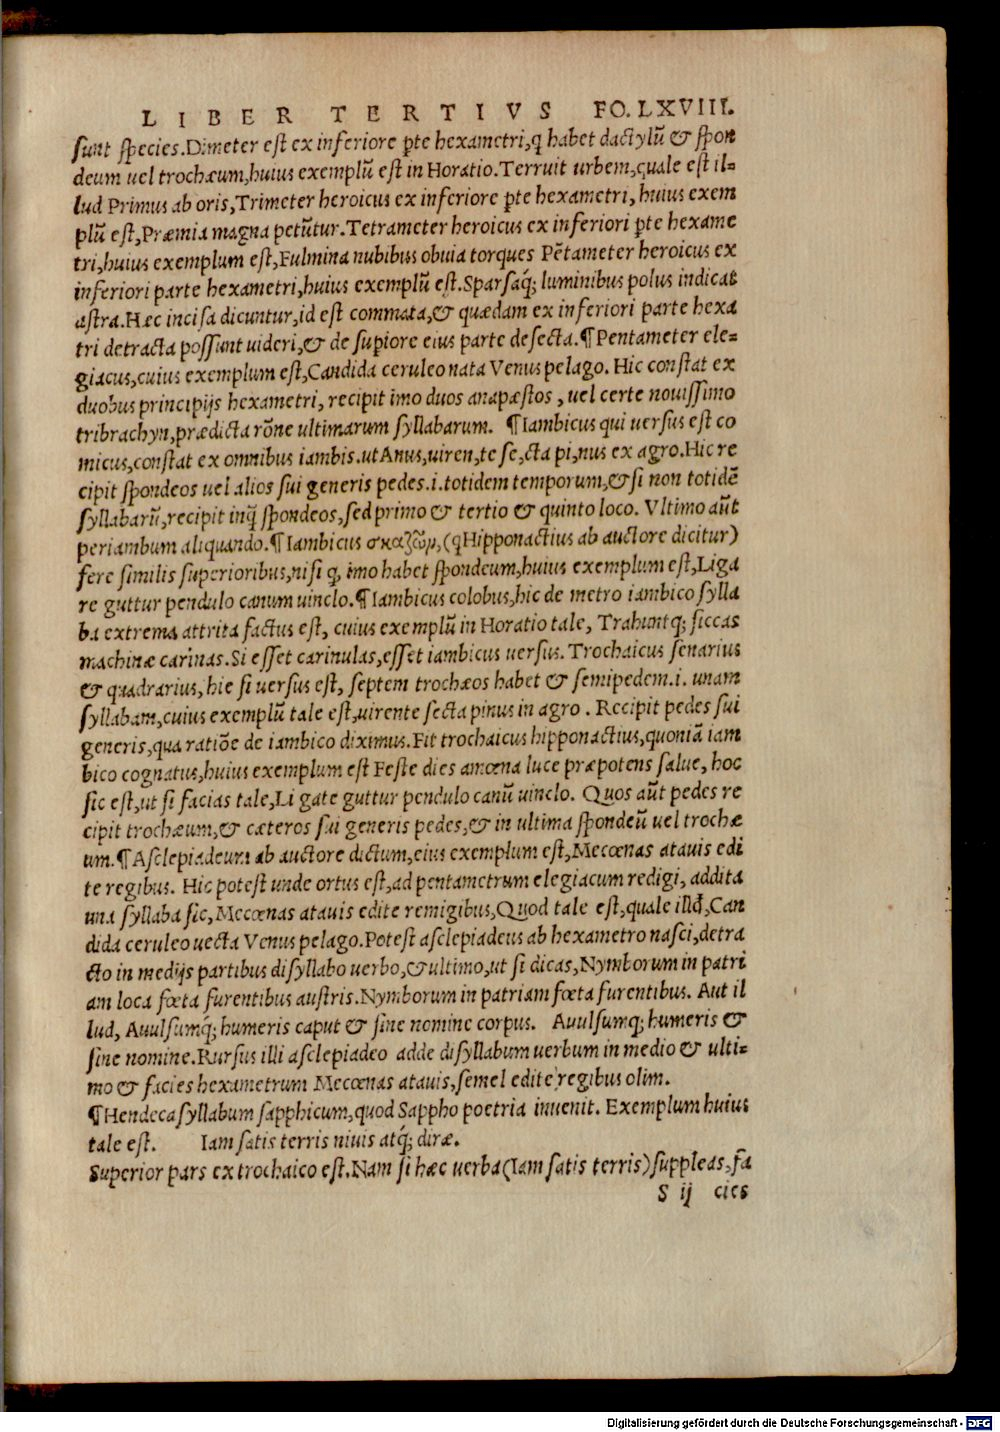 LIBER TERTIVS FO. LXVIII.
sunt species. Dimeter est ex inferiore ꝑte hexametri, q habet dactylũ & spon
deum uel trochæum, huius exemplũ est in Horatio. Terruit urbem, quale est il=
lud Primus ab oris, Trimeter heroicus ex inferiore ꝑte hexametri, huius exem
plũ est, Præmia magna petũtur. Tetrameter heroicus ex inferiori ꝑte hexame
tri, huius exemplum est, Fulmina nubibus obuia torques Pẽtameter heroicus ex
inferiori parte hexametri, huius exemplũ est. Sparsaq́; luminibus polus indicat
astra. Hæc incisa dicuntur, id est commata, & quædam ex inferiori parte hexa
tri detracta possunt uideri, & de supiore eius parte desecta. ¶ Pentameter ele=
giacus, cuius exemplum est, Candida ceruleo nata Venus pelago. Hic constat ex
duobus principijs hexametri, recipit imo duos anapæstos, uel certe nouissimo
tribrachyn, prædicta rõne ultimarum syllabarum. ¶ Iambicus qui uersus est co
micus, constat ex omnibus iambis. ut Anus, uiren, te se, cta pi, nus ex agro. Hic re
cipit spondeos uel alios sui generis pedes .i. totidem temporum, & si non totidẽ
syllabarũ, recipit inq̃ spondeos, sed primo & tertio & quinto loco. Vltimo aũt
periambum aliquando. ¶ Iambicus σκαζῶμ, (q Hipponactius ab auctore dicitur)
fere similis superioribus, nisi q, imo habet spondeum, huius exemplum est, Liga
re guttur pendulo canum uinclo. ¶ Iambicus colobus, hic de metro iambico sylla
ba extrema attrita factus est, cuius exemplũ in Horatio tale, Trahuntq́; siccas
machinæ carinas. Si esset carinulas, esset iambicus uersus. Trochaicus senarius
& quadrarius, hie si uersus est, septem trochæos habet & semipedem .i. unam
syllabam, cuius exemplũ tale est, uirente secta pinus in agro. Recipit pedes sui
generis, qua ratiõe de iambico diximus. Fit trochaicus hipponactius, quoniã iam
bico cognatus, huius exemplum est Feste dies amœna luce præpotens salue, hoc
sic est, ut si facias tale, Li gate guttur pendulo canũ uinclo. Quos aũt pedes re
cipit trochæum, & cæteros sui generis pedes, & in ultima spondeũ uel trochæ
um. ¶ Asclepiadeum ab auctore dictum, eius exemplum est, Mecœnas atauis edi
te regibus. Hic potest unde ortus est, ad pentametrum elegiacum redigi, addita
una syllaba sic, Mecœnas atauis edite remigibus, Quod tale est, quale illđ, Can
dida ceruleo uecta Venus pelago. Potest asclepiadeus ab hexametro nasci, detra
cto in medijs partibus disyllabo uerbo, & ultimo, ut si dicas, Nymborum in patri
am loca fœta furentibus austris. Nymborum in patriam fœta furentibus. Aut il
lud, Auulsumq́; humeris caput & sine nomine corpus. Auulsumq; humeris &
sine nomine. Rursus illi asclepiadeo adde disyllabum uerbum in medio & ulti=
mo & facies hexametrum Mecœnas atauis, semel edite regibus olim.
¶ Hendecasyllabum sapphicum, quod Sappho poetria inuenit. Exemplum huius
tale est. Iam satis terris niuis atq́; diræ.
Superior pars ex trochaico est. Nam si hæc uerba (Iam satis terris) suppleas, fa
S ij cies
Digitalisierung gefördert durch die Deutsche Forschungsgemeinschaft - DFG